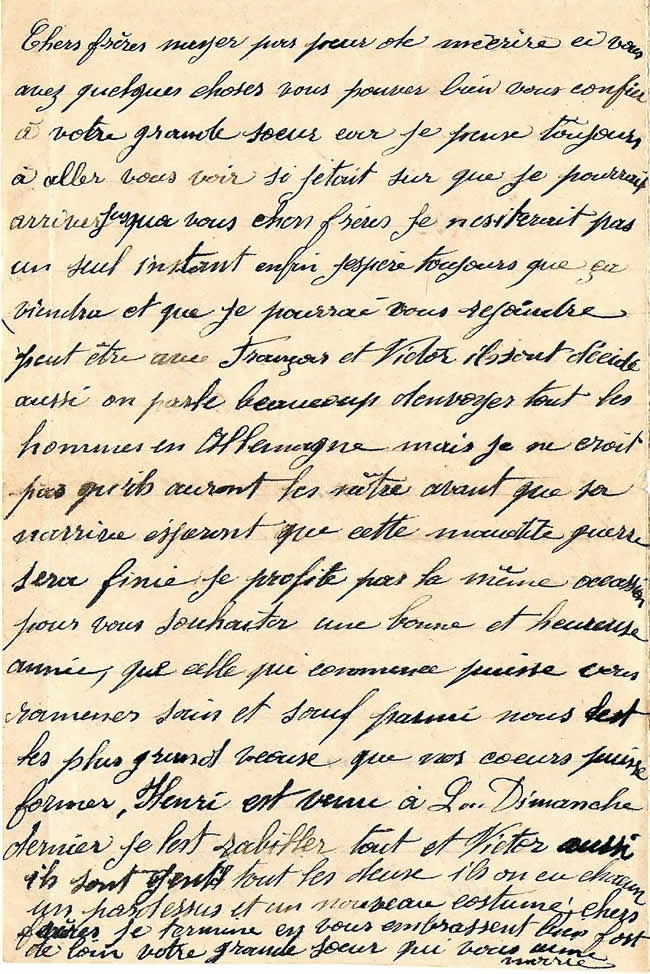 Chers frères nayer pas peur de mécrire ci vous
avez quelques choses vous pouver bien vous confier
à votre grande soeur car je pense toujours
à aller vous voir si jétait sur que je pourrait
arriver jusqua vous chers frères je nesiterait pas
un seul instant enfin jespère toujours que ça
viendra et que je pourrai vous rejoindre
peut être avec François et Victor ils sont décide
aussi on parle beaucoup denvoyer tout les
hommes en Allemagne mais je ne croit
pas qu'ils auront les nôtre avant que sa
narrive ésperont que cette maudite guerre
sera finie je profite par la même occasion
pour vous souhaiter une bonne et heureuse
année, que celle qui commence puisse vous
ramener sain et sauf parmi nous sest
les plus grand veause que nos coeurs puisse
former, Henri est venu à Dimanche
dernier je lest rabiller tout et Victor aussi
ils sont gentil tout les deuse ils on eu chaqun
un pardessus et un nouveau costume, chers
frères je termine en vous embrassent bien fort
de loin votre grande soeur qui vous aime
marrie